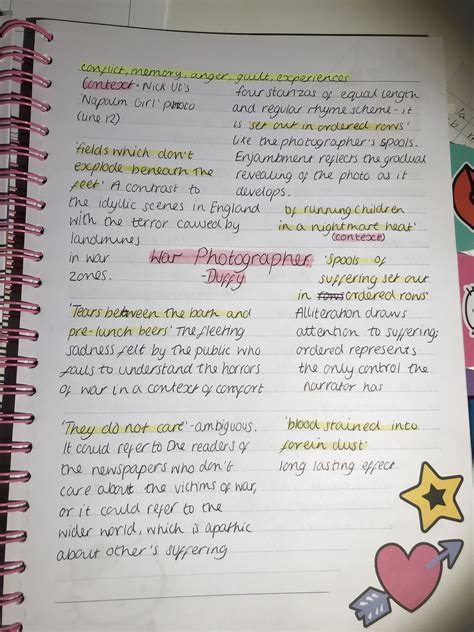 conflict, memory, anger, guilt, experiences
Context - Nick Ut's
Napalm Girl' photo
(line 12)
four stanzas of equal length
and regular rhyme scheme - it
is 'set out in ordered rows'
like the photographer's spools.
Enjambment reflects the gradual
revealing of the photo as it
develops.
'fields which don't
explode beneath the
feet' A contrast to
the idyllic scenes in England
with the terror caused by
landmines
in war
zones.
of running children
in a nightmare heat'
(context)
War Photographer
-Duffy
'spools of
suffering set out
in rows ordered rows'
Alliteration draws
attention to suffering;
ordered represents
the only control the
narrator has
'Tears between the bath and
pre-lunch beers' The fleeting
sadness felt by the public who
fails to understand the horrors
of war in a context of comfort
'They do not care' - ambiguous.
It could refer to the readers of
the newspapers who don't
care about the victims of war,
or it could refer to the
wider world, which is apathic
about other's suffering
'blood stained into
forein dust'
long lasting effect